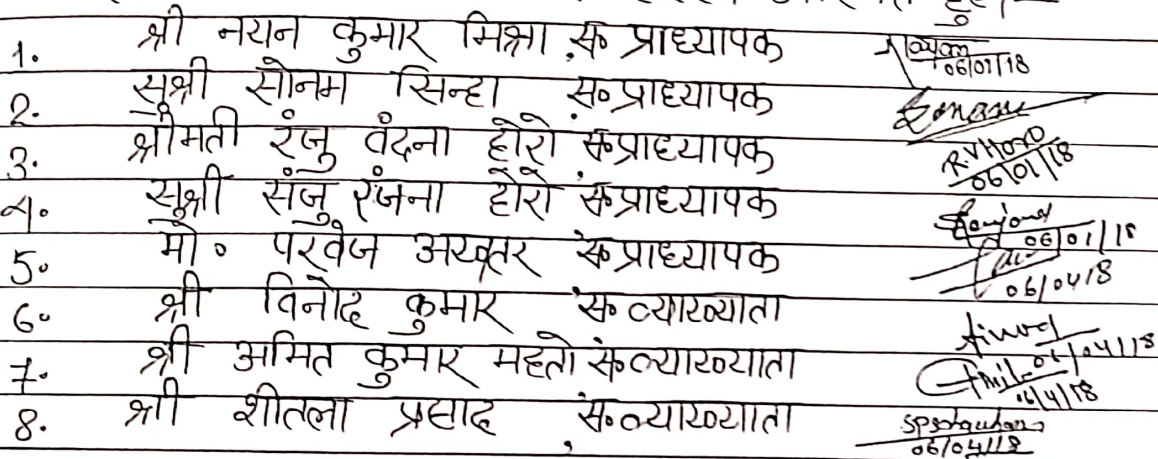 1. श्री नयन कुमार मिश्रा स० प्राध्यापक 06/01/18
2. सुश्री सोनम सिन्हा स० प्राध्यापक
3. श्रीमती रंजु वंदना होरो स० प्राध्यापक R.V Horo 06/01/18
4. सुश्री संजु रंजना होरो स० प्राध्यापक 06/01/18
5. मो० परवेज अख्तर स० प्राध्यापक 06/04/18
6. श्री विनोद कुमार स० व्याख्याता
7. श्री अमित कुमार महतो स० व्याख्याता 06/4/18
8. श्री शीतला प्रसाद स० व्याख्याता 06/04/18